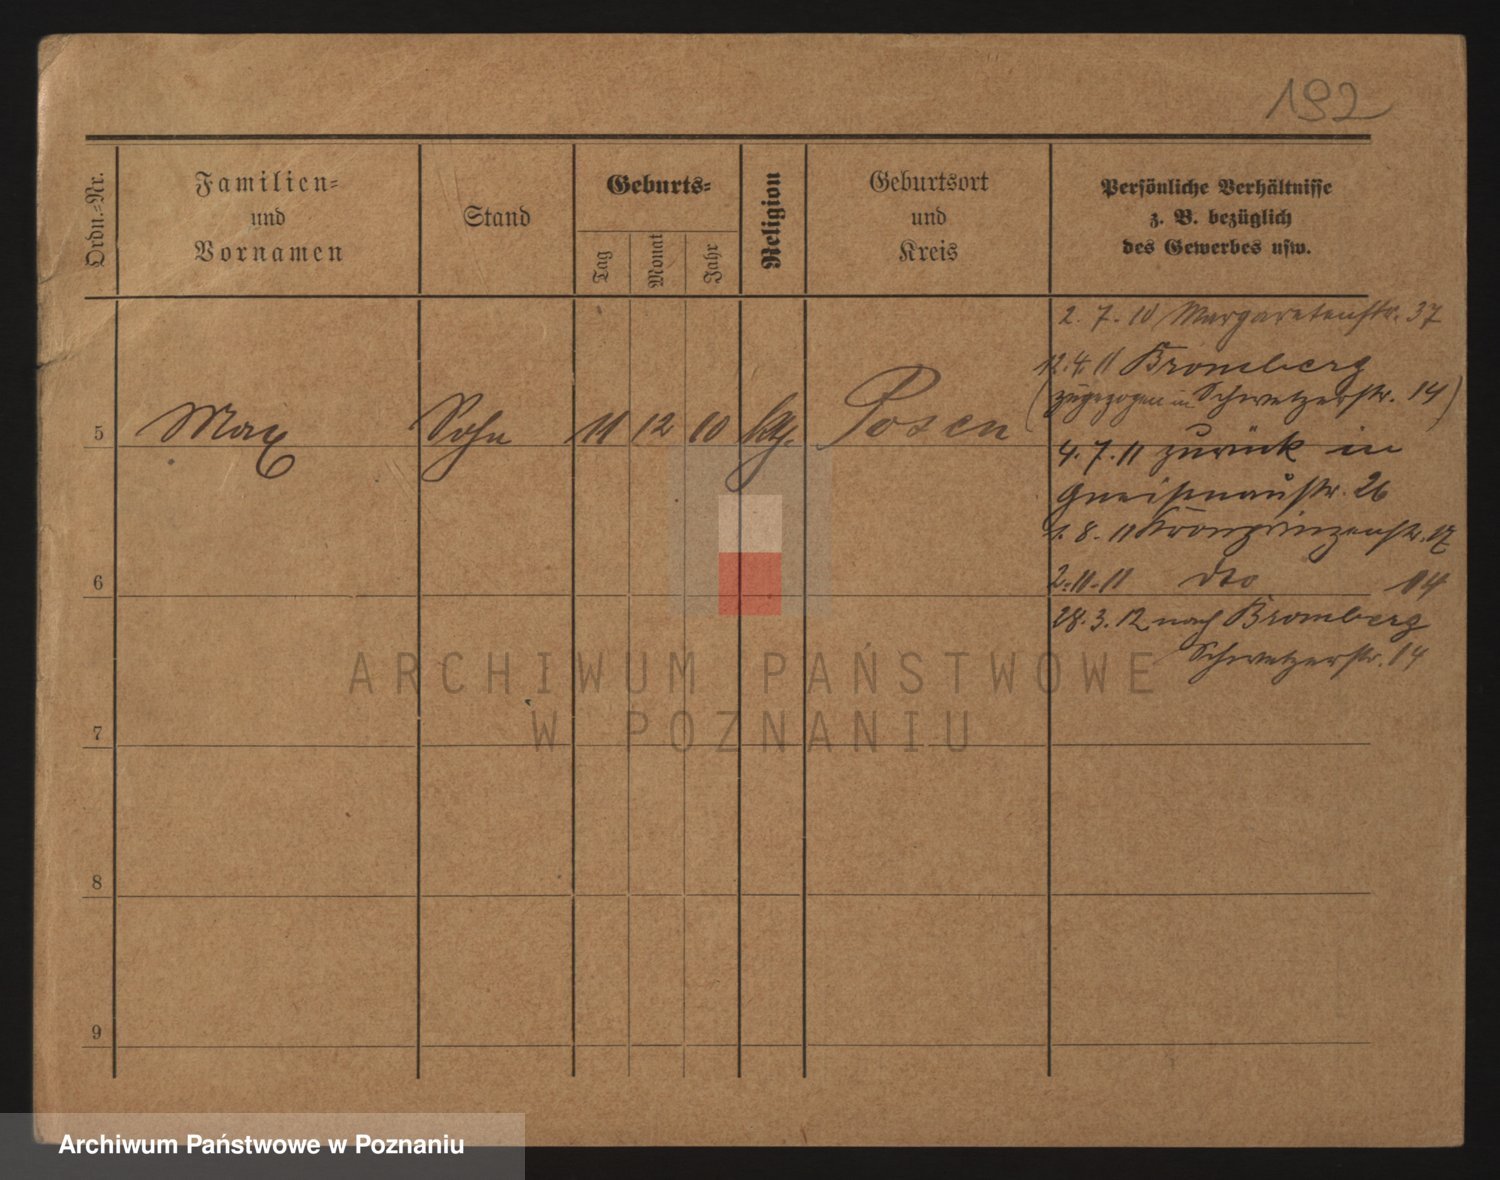 192
Ordn.-Nr.
Familien-
und
Vornamen
Stand
Geburts-
Tag
Monat
Jahr
Religion
Geburtsort
und
Kreis
Persönliche Verhältnisse
z. B. bezüglich
des Gewerbes usw.
2. 7. 10 Margaretenstr. 37
12. 4. 11 Bromberg
(zugezogen in Schwetzerstr. 14)
5 Max Sohn 11 12 10 kth. Posen
4. 7. 11 zurück in
Gneisenaustr. 26
1. 8. 11 Kronprinzenstr. 17
6
2. 11. 11 dto 14
28. 3. 12 nach Bromberg
Schwetzerstr. 14
ARCHIWUM PAŃSTWOWE
W POZNANIU
7
8
9
Archiwum Państwowe w Poznaniu